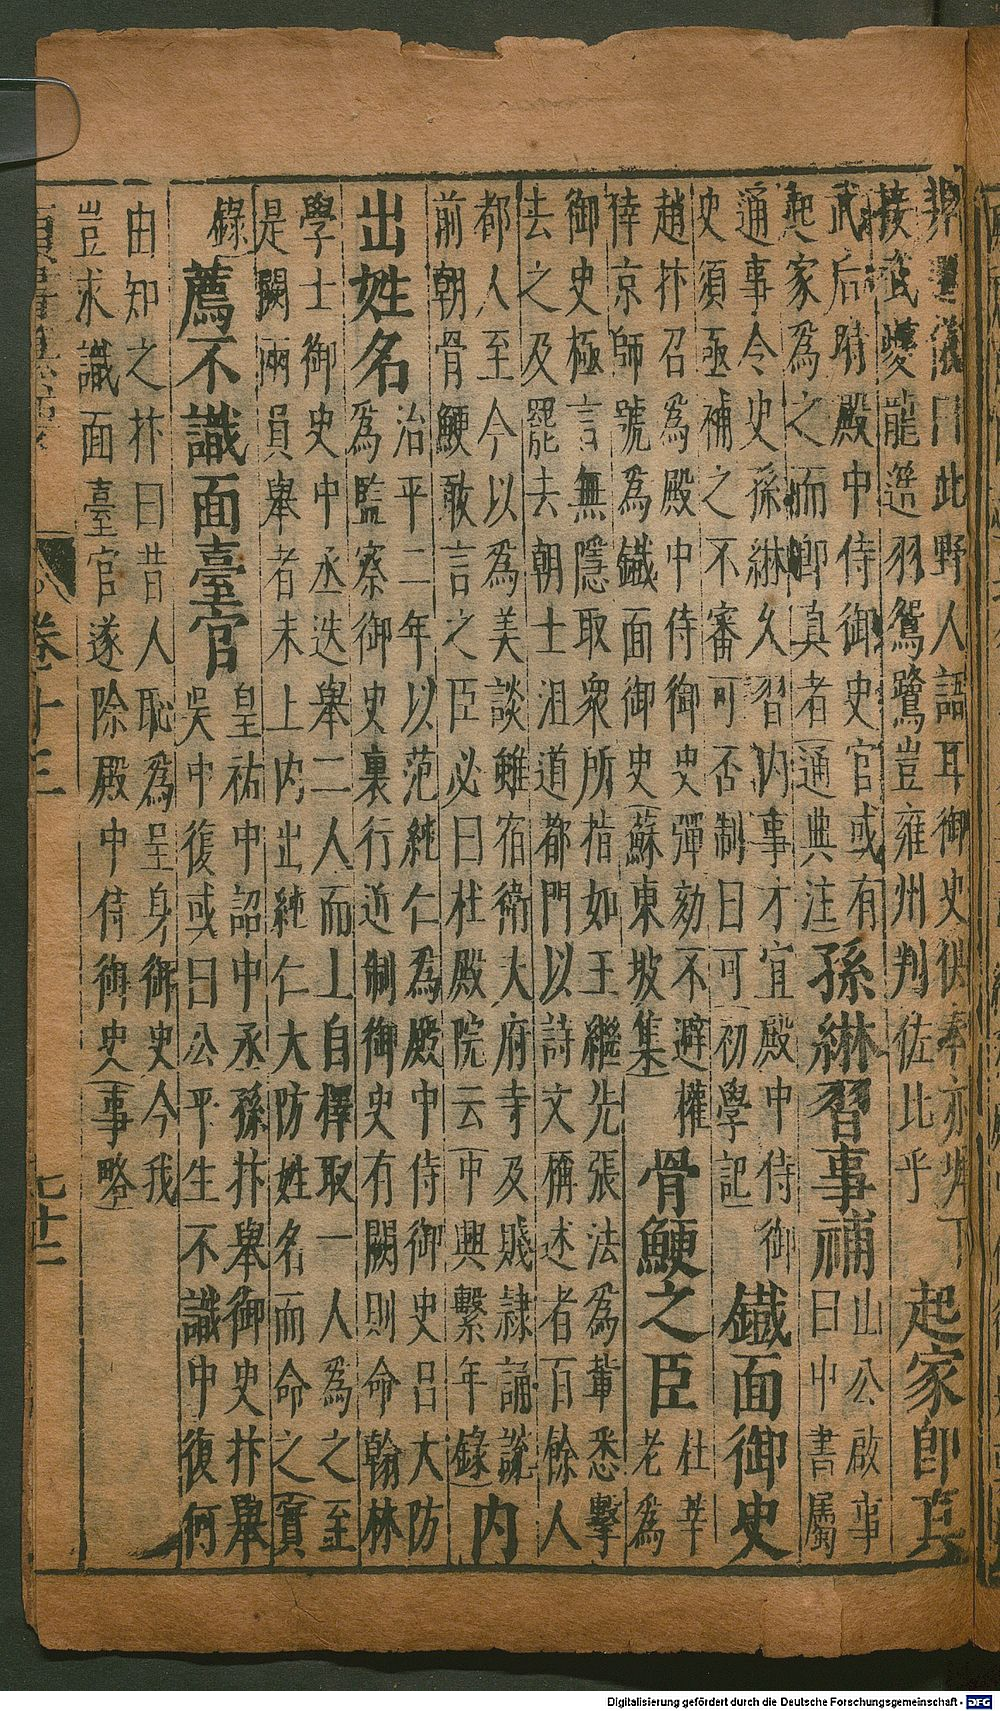 儀曰此野人語耳御史供奉亦墀下
接武夔龍簉羽鴛鷺豈雍州判佐比乎
起家即真
武后時殿中侍御史官或有
起家為之而即真者(通典注
孫綝習事補
山公啟事
曰中書屬
通事令史孫綝久習内事才宜殿中侍御
史須亟補之不審可否制曰可(初學記
鐡面御史
趙抃召為殿中侍御史彈劾不避權
倖京師號為鐡面御史(蘇東坡集
骨鯁之臣
杜莘
老為
御史極言無隱取衆所指如王繼先張法為輩悉擊
去之及罷去朝士沮道都門以詩文稱述者百餘人
都人至今以為美談雖宿衛大府寺及賤隷誦說
前朝骨鯁敢言之臣必曰杜殿院云(中興繫年錄
内
出姓名
治平二年以范純仁為殿中侍御史呂大防
為監察御史裏行近制御史有闕則命翰林
學士御史中丞迭舉二人而上自擇取一人為之至
是闕兩員舉者未上内出純仁大防姓名而命之(實
錄
薦不識面臺官
皇祐中詔中丞孫抃舉御史抃舉
吳中復或曰公平生不識中復何
由知之抃曰昔人恥為呈身御史今我
豈求識面臺官遂除殿中侍御史(事略
卷十三
七十二
Digitalisierung gefördert durch die Deutsche Forschungsgemeinschaft - DFG